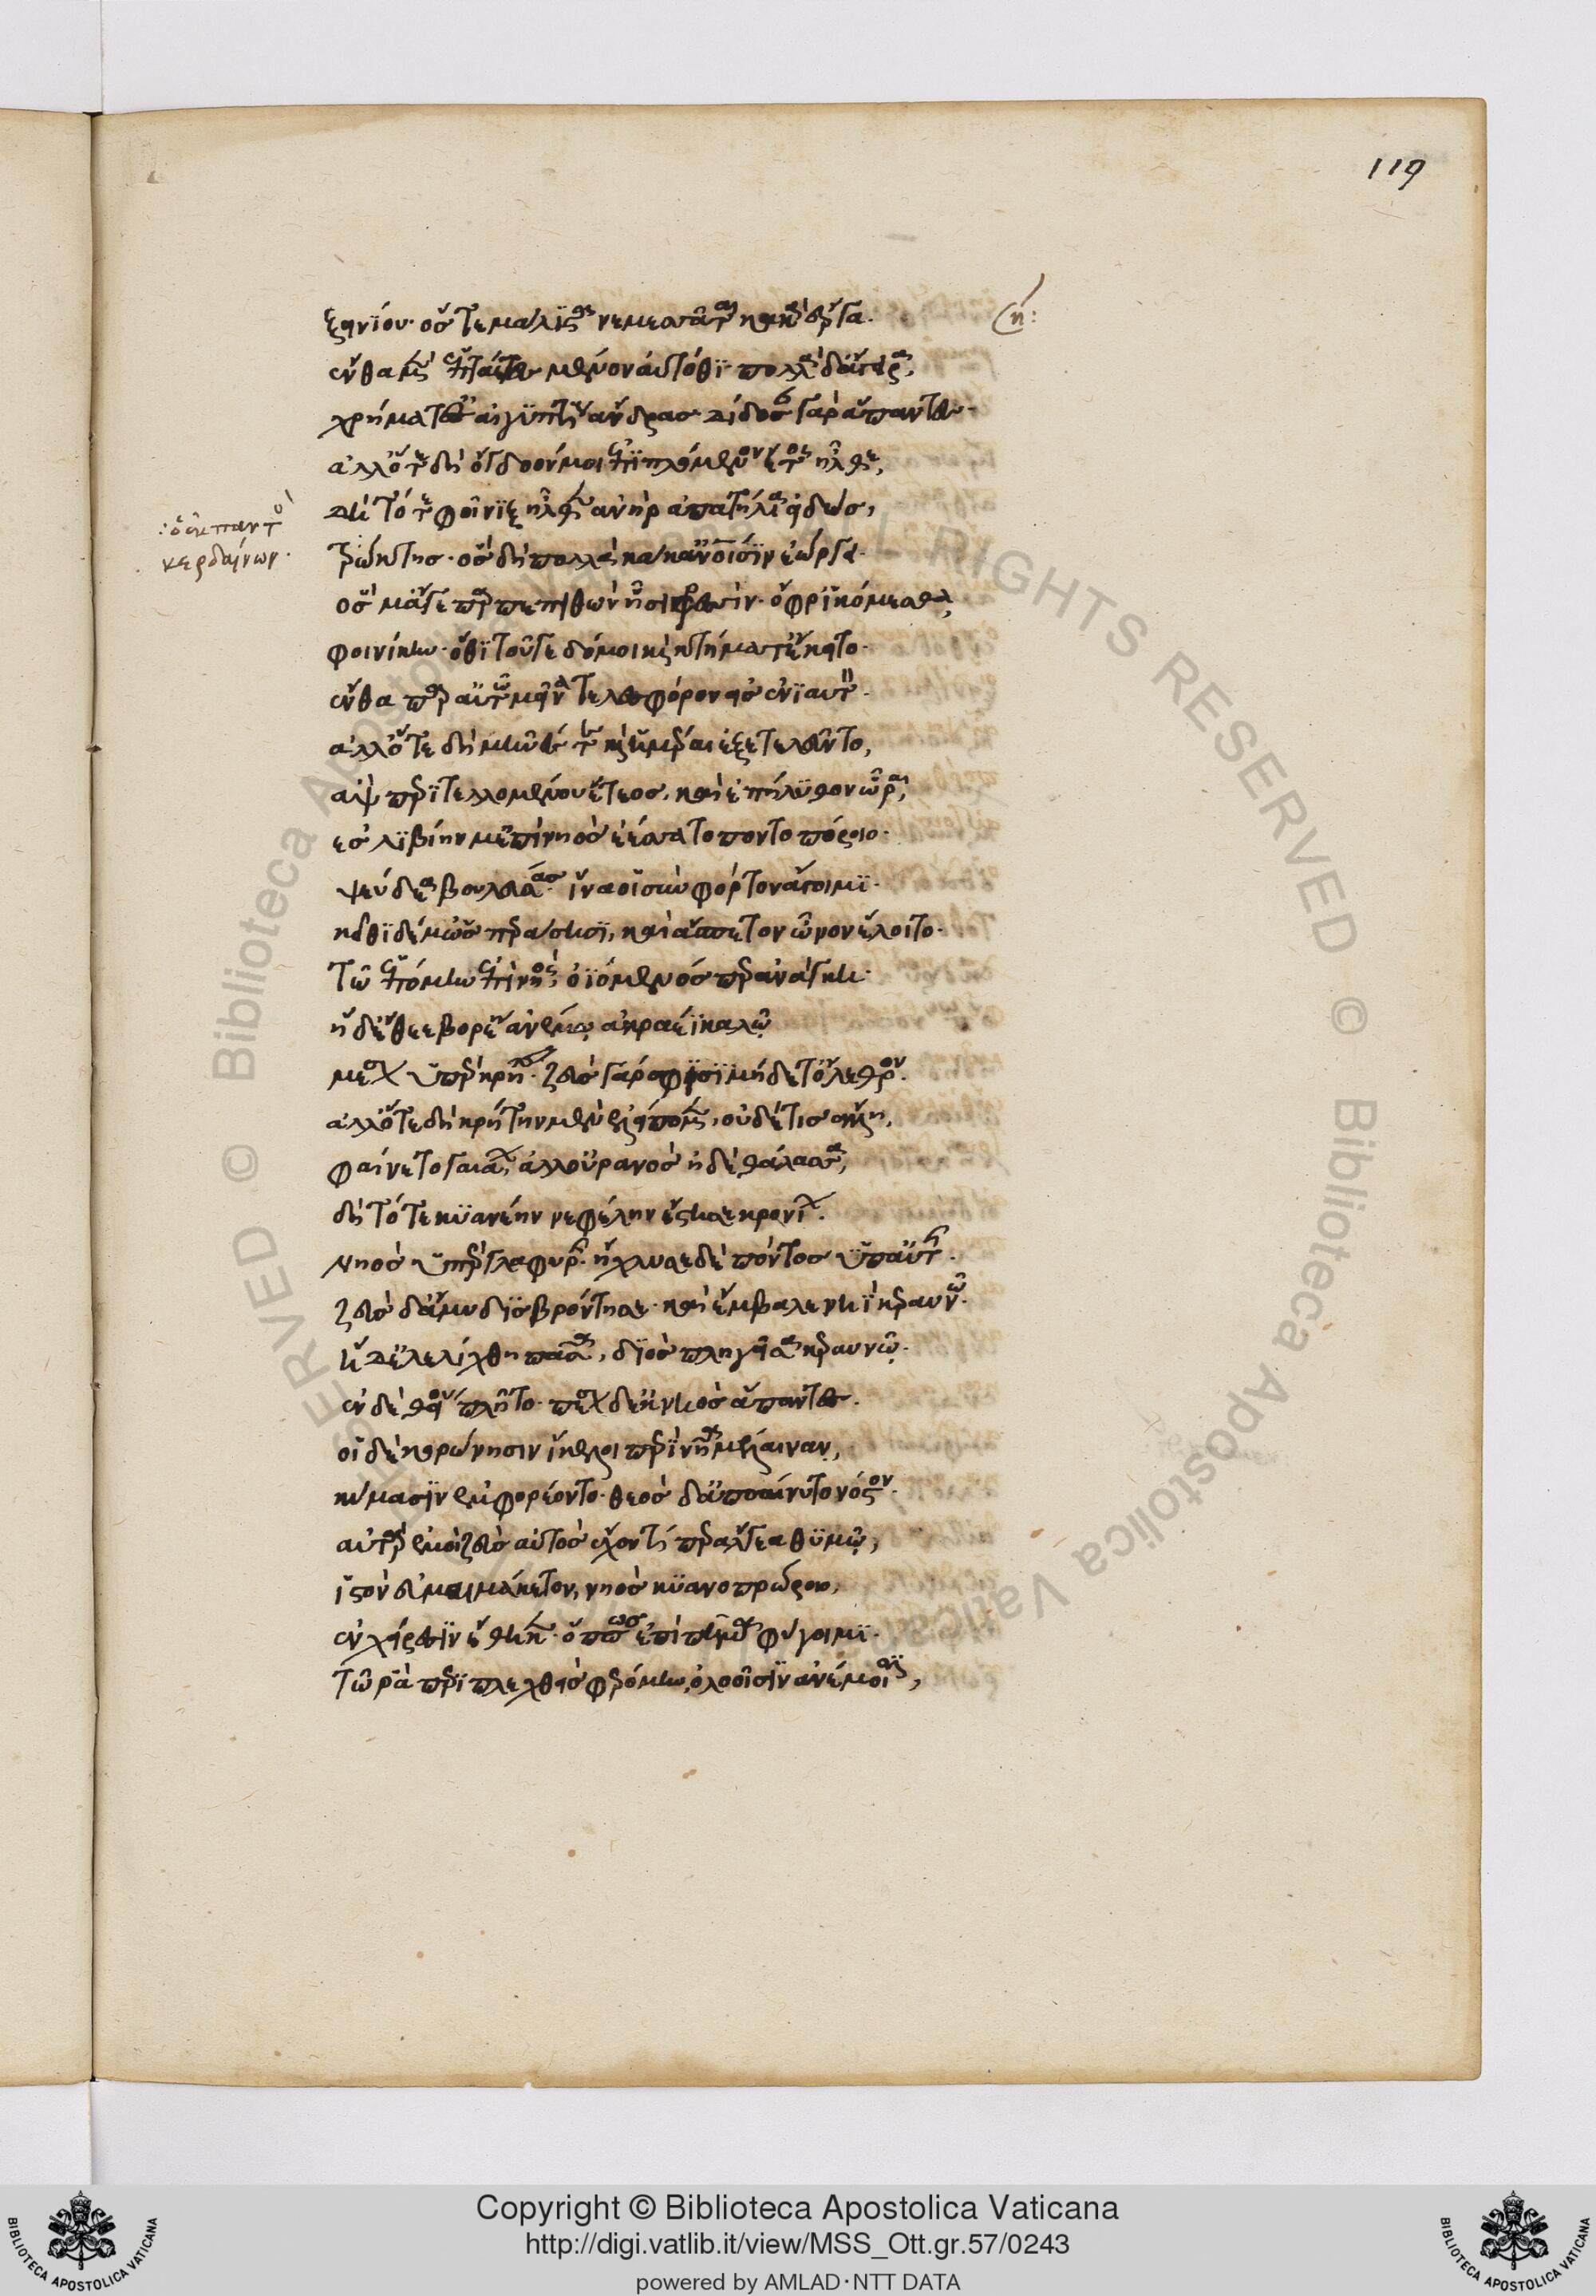 119
ξεινίου· ὅς τε μάλιστα νεμεσᾶται κακὰ ἔργα·
(η:
ἔνθα μὲν ἑπτάετες μένον αὐτόθι· πολλὰ δ' ἄγειρα,
χρήματ' ἀν' αἰγυπτίους ἄνδρας· δίδοσαν γὰρ ἅπαντες·
ἀλλ' ὅτε δὴ ὄγδοόν μοι ἐπιπλόμενον ἔτος ἦλθε,
δὴ τότε φοῖνιξ ἦλθεν ἀνὴρ ἀπατήλια εἰδώς,
:ὁ ἐκ παντὸ
κερδαίνων·
τρώκτης· ὃς δὴ πολλὰ κάκ' ἀνθρώποισιν ἐώργει·
ὅς μ' ἄγε παρπεπιθὼν ᾗσι φρεσὶν· ὄφρ' ἱκόμεσθα,
φοινίκην· ὅθι τοῦγε δόμοι καὶ κτήματ' ἔκειτο·
ἔνθα παρ' αὐτῷ μεῖνα τελεσφόρον εἰς ἐνιαυτ
ἀλλ' ὅτε δὴ μῆνές τε καὶ ἡμέραι ἐξετελεῦντο,
ἂψ περιτελλομένου ἔτεος, καὶ ἐπήλυθον ὧραι,
ἐς λιβύην μ' ἐπὶ νηὸς ἐέσσατο ποντοπόροιο·
ψεύδεα βουλεύσας· ἵνα οἱ σὺν φόρτον ἄγοιμι·
κεῖθι δέ μ' ὡς περάσῃσι, καὶ ἄσπετον ὦνον ἕλοιτο·
τῷ ἑπόμην ἐπὶ νηὸς· ὀϊόμενός περ ἀνάγκῃ·
ἡ δ' ἔθεεν βορέῃ ἀνέμῳ ἀκραέϊ καλῷ
μέσσον ὑπὲρ κρήτης· ζεὺς γάρ σφισι μήδετ' ὄλεθρον·
ἀλλ' ὅτε δὴ κρήτην μὲν ἐλείπομεν, οὐδέ τις ἄλλη,
φαίνετο γαιάων, ἀλλ' οὐρανὸς ἠδὲ θάλασσα,
δὴ τότε κυανέην νεφέλην ἔστησε κρονίων·
νηὸς ὕπερ γλαφυρῆς· ἤχλυσε δὲ πόντος ὑπ' αὐτῆς·
ζεὺς δ' ἄμυδις βρόντησε· καὶ ἔμβαλε νηῒ κεραυνόν·
ἡ δ' ἐλελίχθη πᾶσα, διὸς πληγεῖσα κεραυνῷ·
ἐν δὲ θεείου πλῆτο· πέσον δ' ἐκ νηὸς ἅπαντες·
οἱ δὲ κορώνῃσιν ἴκελοι περὶ νῆα μέλαιναν,
κύμασιν ἐμφορέοντο· θεὸς δ' ἀποαίνυτο νόστον·
αὐτὰρ ἐμοὶ ζεὺς αὐτὸς ἔχοντί περ ἄλγεα θυμῷ,
ἱστὸν ἀμαιμάκετον, νηὸς κυανοπρώροιο,
ἐν χείρεσσιν ἔθηκεν· ὅπως ἔτι πῆμα φύγοιμι·
τῷ ῥα περιπλεχθεὶς φερόμην, ὀλοοῖσιν ἀνέμοισι,
Copyright © Biblioteca Apostolica Vaticana
http://digi.vatlib.it/view/MSS_Ott.gr.57/0243
powered by AMLAD·NTT DATA
BIBLIOTECA APOSTOLICA VATICANA
BIBLIOTECA APOSTOLICA VATICANA